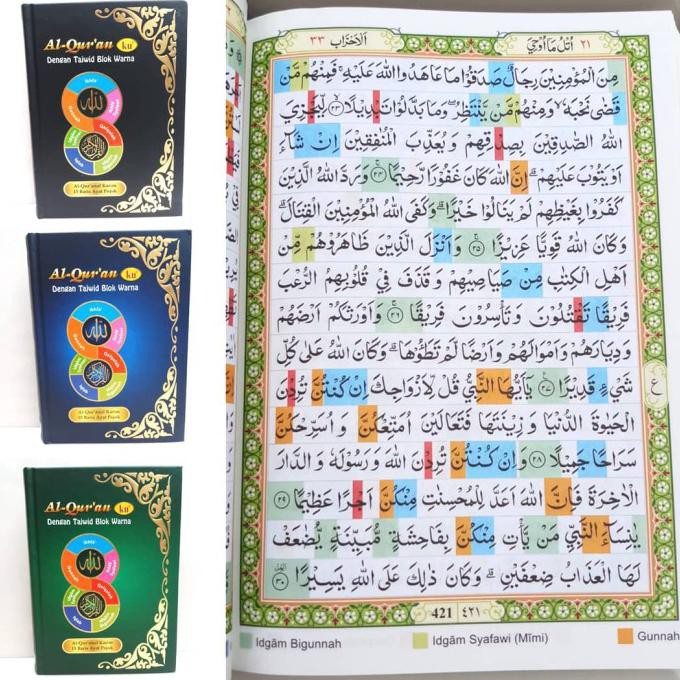 Al-Qur'an ku
Dengan Tajwid Blok Warna
Al-Qur'anul Karim
15 Baris Ayat Pojok
Al-Qur'an ku
Dengan Tajwid Blok Warna
Al-Qur'anul Karim
15 Baris Ayat Pojok
Al-Qur'an ku
Dengan Tajwid Blok Warna
Al-Qur'anul Karim
15 Baris Ayat Pojok
٢١ اُتْلُ مَآ اُوْحِيَ
اَلْاَحْزَاب ٣٣
مِنَ الْمُؤْمِنِيْنَ رِجَالٌ صَدَقُوْا مَا عَاهَدُوا اللّٰهَ عَلَيْهِ ۚ فَمِنْهُمْ مَّنْ
قَضٰى نَحْبَهٗ ۙ وَمِنْهُمْ مَّنْ يَّنْتَظِرُ ۖ وَمَا بَدَّلُوْا تَبْدِيْلًا ۙ ٢٣ لِّيَجْزِيَ
اللّٰهُ الصّٰدِقِيْنَ بِصِدْقِهِمْ وَيُعَذِّبَ الْمُنٰفِقِيْنَ اِنْ شَآءَ
اَوْ يَتُوْبَ عَلَيْهِمْ ۗ اِنَّ اللّٰهَ كَانَ غَفُوْرًا رَّحِيْمًا ۚ ٢٤ وَرَدَّ اللّٰهُ الَّذِيْنَ
كَفَرُوْا بِغَيْظِهِمْ لَمْ يَنَالُوْا خَيْرًا ۗ وَكَفَى اللّٰهُ الْمُؤْمِنِيْنَ الْقِتَالَ ۗ
وَكَانَ اللّٰهُ قَوِيًّا عَزِيْزًا ۚ ٢٥ وَاَنْزَلَ الَّذِيْنَ ظَاهَرُوْهُمْ مِّنْ
اَهْلِ الْكِتٰبِ مِنْ صَيَاصِيْهِمْ وَقَذَفَ فِيْ قُلُوْبِهِمُ الرُّعْبَ
فَرِيْقًا تَقْتُلُوْنَ وَتَأْسِرُوْنَ فَرِيْقًا ۚ ٢٦ وَاَوْرَثَكُمْ اَرْضَهُمْ
وَدِيَارَهُمْ وَاَمْوَالَهُمْ وَاَرْضًا لَّمْ تَطَـُٔوْهَا ۗ وَكَانَ اللّٰهُ عَلٰى كُلِّ
شَيْءٍ قَدِيْرًا ٢٧ يٰٓاَيُّهَا النَّبِيُّ قُلْ لِّاَزْوَاجِكَ اِنْ كُنْتُنَّ تُرِدْنَ
الْحَيٰوةَ الدُّنْيَا وَزِيْنَتَهَا فَتَعَالَيْنَ اُمَتِّعْكُنَّ وَاُسَرِّحْكُنَّ
سَرَاحًا جَمِيْلًا ٢٨ وَاِنْ كُنْتُنَّ تُرِدْنَ اللّٰهَ وَرَسُوْلَهٗ وَالدَّارَ
الْاٰخِرَةَ فَاِنَّ اللّٰهَ اَعَدَّ لِلْمُحْسِنٰتِ مِنْكُنَّ اَجْرًا عَظِيْمًا ٢٩
يٰنِسَآءَ النَّبِيِّ مَنْ يَّأْتِ مِنْكُنَّ بِفَاحِشَةٍ مُّبَيِّنَةٍ يُّضٰعَفْ
لَهَا الْعَذَابُ ضِعْفَيْنِ ۗ وَكَانَ ذٰلِكَ عَلَى اللّٰهِ يَسِيْرًا ٣٠
421 ٤٢١
Idgām Bigunnah
Idgām Syafawi (Mīmi)
Gunnah